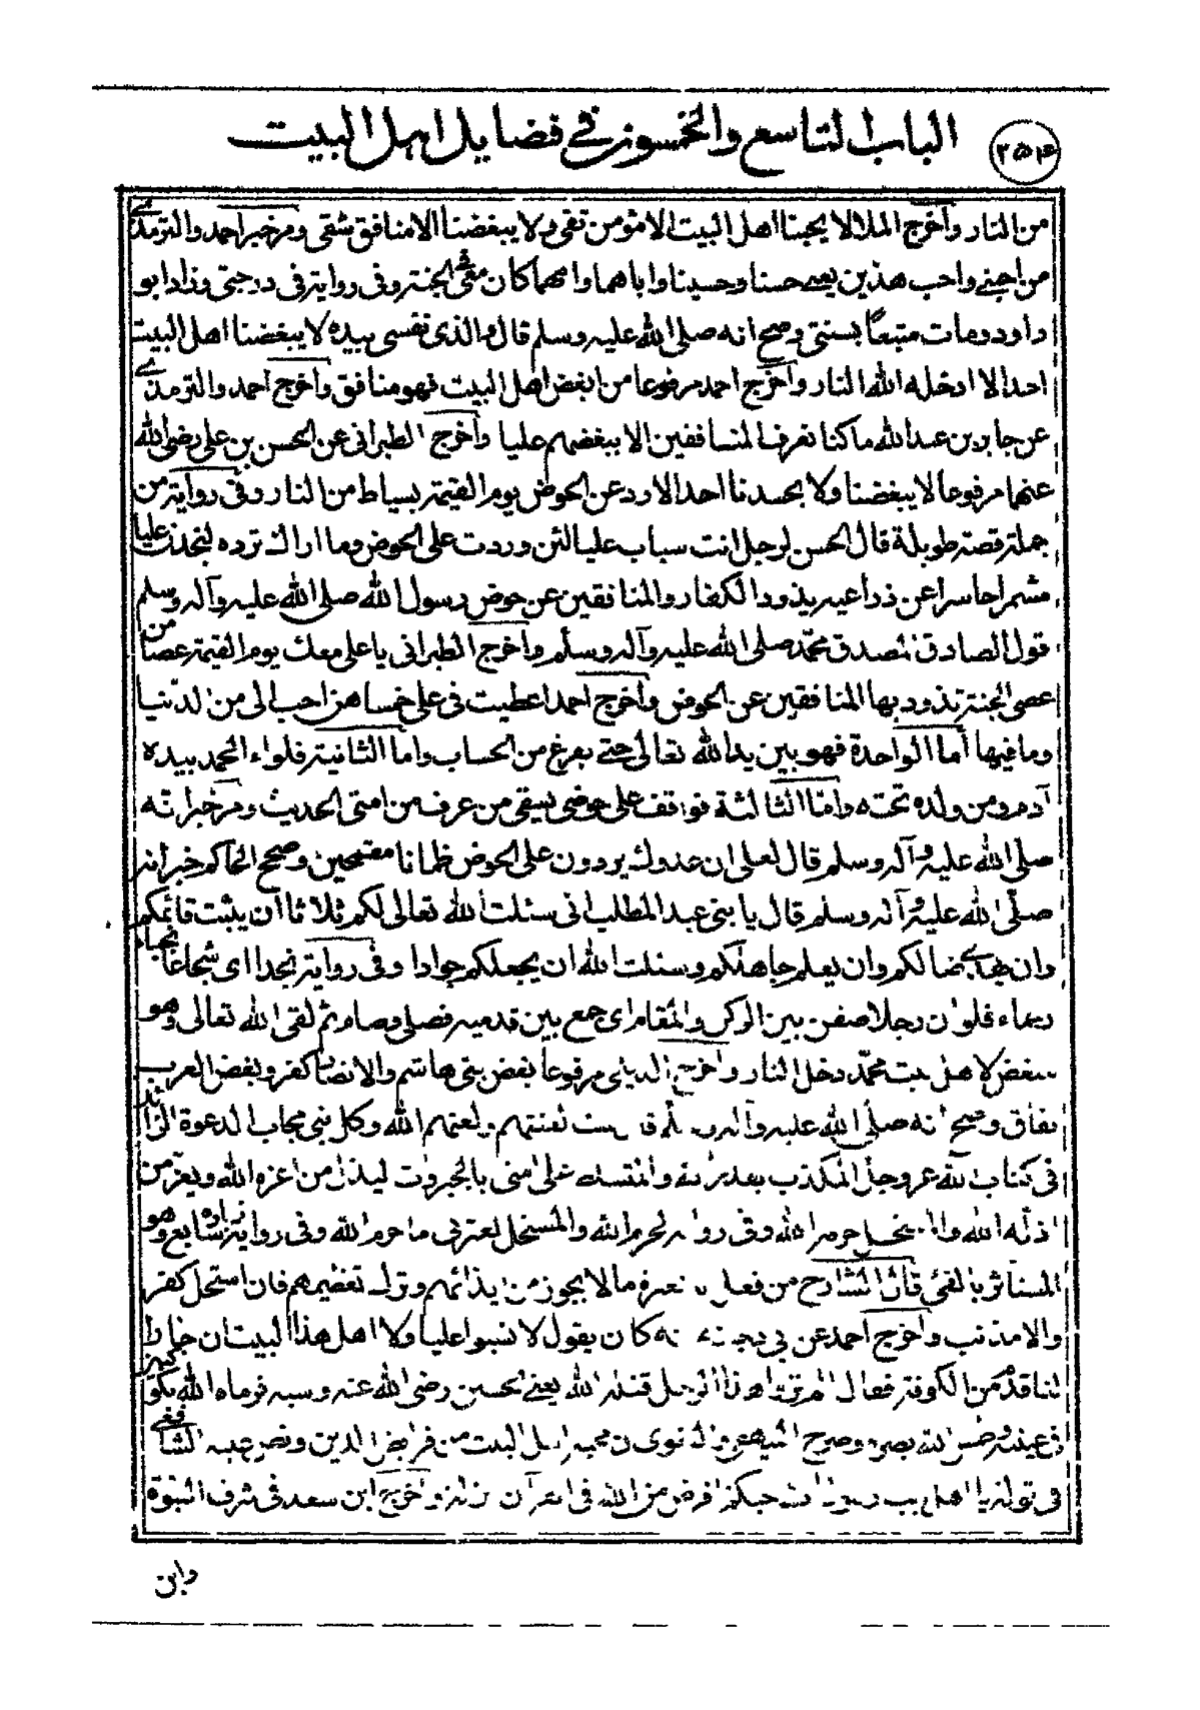 الباب التاسع والخمسون في فضايل اهل البيت
٢٥٤
من النار وأخرج الملا لا يحبنا اهل البيت الا مؤمن تقي ولا يبغضنا الا منافق شقي ومر خبر احمد والترمذي
من احبني واحب هذين يعني حسنا وحسينا واباهما وامهما كان معي في الجنة وفي رواية في درجتي وزاد ابو
داود ومات متبعًا بسنتي وصح انه صلى الله عليه وسلم قال والذي نفسي بيده لا يبغضنا اهل البيت
احد الا ادخله الله النار وأخرج احمد مرفوعا من ابغض اهل البيت فهو منافق وأخرج احمد والترمذي
عن جابر بن عبد الله ما كنا نعرف المنافقين الا ببغضهم عليا وأخرج الطبراني عن الحسن بن علي رضي الله
عنهما مرفوعا لا يبغضنا ولا يحسدنا احد الا رد عن الحوض يوم القيمة بسياط من النار وفي رواية من
جملة قصة طويلة قال الحسن لرجل انت سباب عليا لئن وردت على الحوض وما اراك ترده لتجدن عليا
مشمرا حاسرا عن ذراعيه يذود الكفار والمنافقين عن حوض رسول الله صلى الله عليه وآله وسلم
قول الصادق المصدق محمّد صلى الله عليه وآله وسلم وأخرج الطبراني يا علي معك يوم القيمة عصا من
عصى الجنة تذود بها المنافقين عن الحوض وأخرج احمد اعطيت في علي خمسا هن احب الي من الدّنيا
وما فيها أما الواحدة فهو بين يد الله تعالى حتى يفرغ من الحساب واما الثانية فلواء الحمد بيده
آدم ومن ولده تحته وأما الثالثة فواقف على حوضي يسقي من عرف من امتي الحديث ومر خبر انه
صلى الله عليه وآله وسلم قال لعلي ان عدوك يردون على الحوض ظمانا مقمحين وصحح الحاكم خبر انه
صلّى الله عليه وآله وسلم قال يا بني عبد المطلب اني سئلت الله تعالى لكم ثلاثا ان يثبت قائمكم
وان يهدي ضالكم وان يعلم جاهلكم وسئلت الله ان يجعلكم جوادا وفي رواية نجدا اي شجاعا نجباء
رحماء فلو ان رجلا صفن بين الركن والمقام اي جمع بين قدميه فصلى وصام ثم لقي الله تعالى وهو
مبغض لاهل بيت محمّد دخل النار وأخرج مرفوعا بغض بني هاشم والانصار كفر وبغض العرب
نفاق وصح انه صلى الله عليه وآله وسلم قال ستة لعنتهم ولعنهم الله وكل نبي مجاب الدعوة الزائد
في كتاب الله عز وجل المكذب بقدر الله والمتسلط على امتي بالجبروت ليذل من اعزه الله ويعزّ من
اذله الله والمستحل حرم الله وفي رواية لحرم الله والمستحل لعترتي ما حرم الله وفي رواية زيادة سابع وهو
المستأثر بالفئ قال الشارح من فعل بالعترة ما لا يجوز من ايذائهم وترك تعظيمهم فان استحل كفر
والا مذنب وأخرج احمد عن ابي رجاء انه كان يقول لا تسبوا عليا ولا اهل هذا البيت ان جارا
لنا قدم من الكوفة فقال الم تروا هذا الرجل قتله الله يعني الحسين رضي الله عنه وسبه فرماه الله بكوكبين
في عينيه وطمس الله بصره وصرح البيهقي والبغوي ان محبة اهل البيت من فرائض الدين ونص عليه الشافعي
في قوله يا اهل بيت رسول الله حبكم فرض من الله في القرآن انزله وأخرج ابن سعد في شرف النبوة
وابن